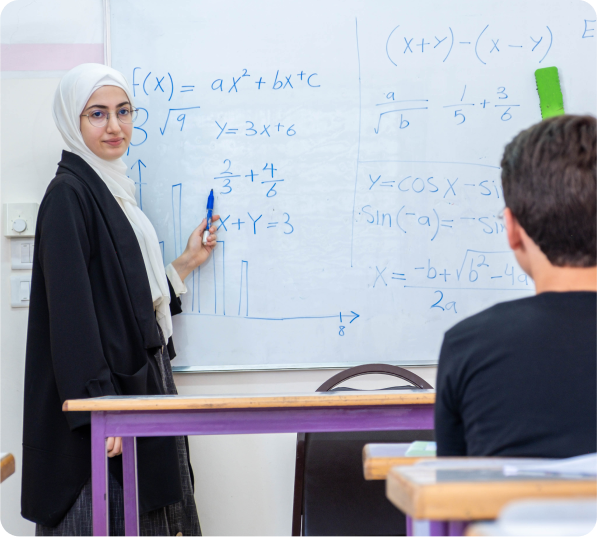 f(x) = ax² + bx + c
3 √9
y = 3x + 6
2/3 + 4/6
x + y = 3
8
(x + y) - (x - y)
a/√b 1/5 + 3/6
y = cos x - si
sin(-a) = - sin
x = -b + √b² - 4a
2a
E